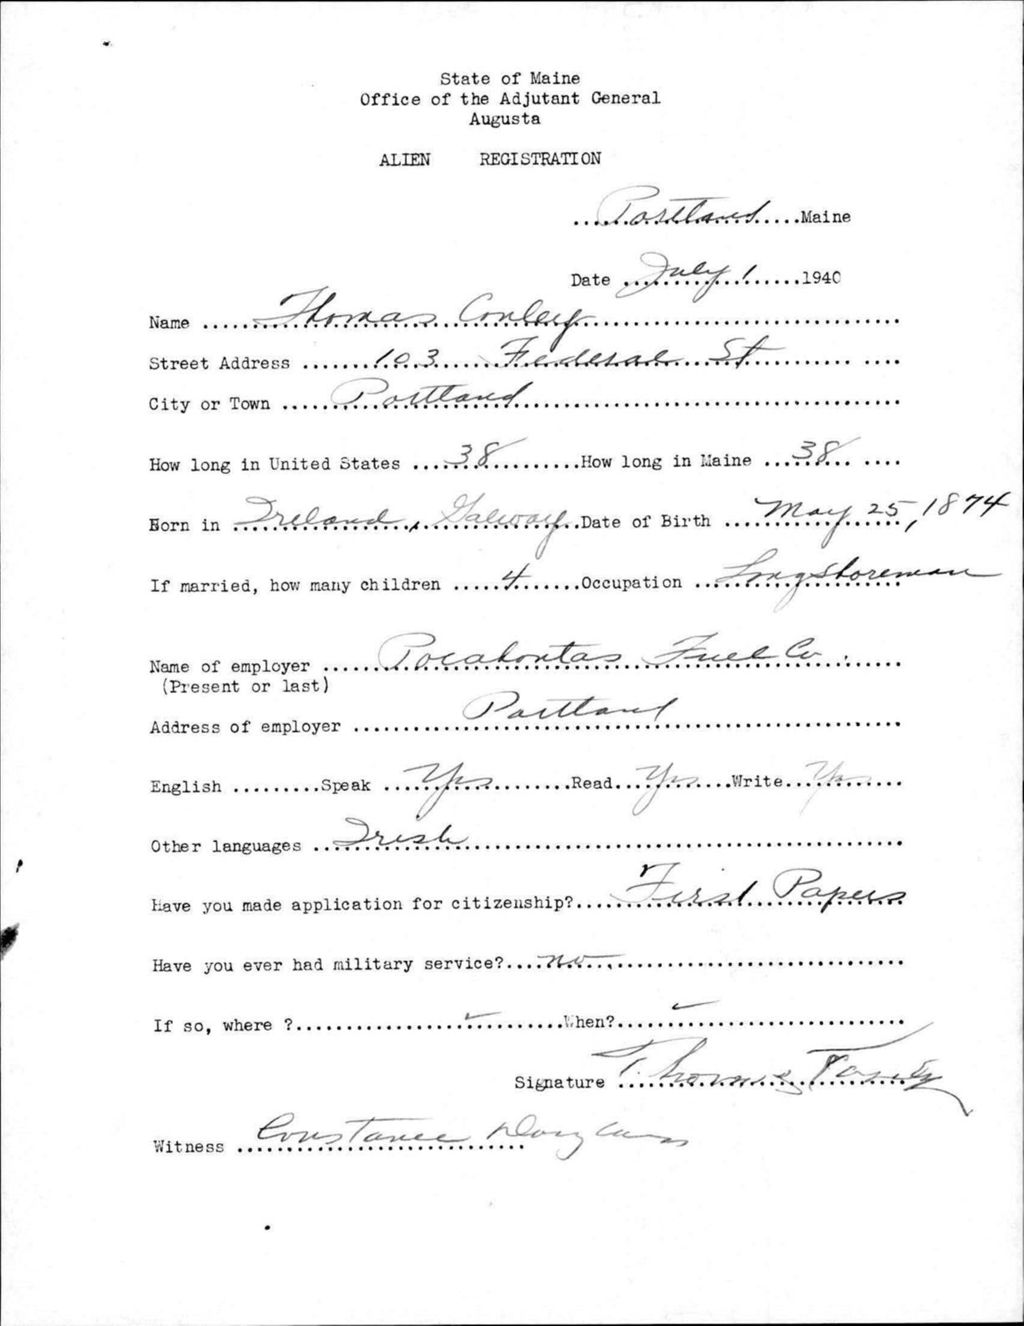 State of Maine
Office of the Adjutant General
Augusta
ALIEN REGISTRATION
....Portland.....Maine
Date ....July 1......1940
Name ......Thomas Conley......
Street Address .......103 Federal St.......
City or Town ......Portland......
How long in United States ....38..........How long in Maine ...38... ....
Born in ...Ireland, Galway...Date of Birth ....May 25, 1874
If married, how many children .....4......Occupation ...Longshoreman
Name of employer ......Pocahontas Fuel Co.......
(Present or last)
Address of employer ......Portland......
English .........Speak ....Yes.........Read...Yes....Write...Yes....
Other languages ..Irish......
Have you made application for citizenship?....First Papers
Have you ever had military service?....no......
If so, where ?......✓..........When?......✓......
Signature Thomas
Witness Constance